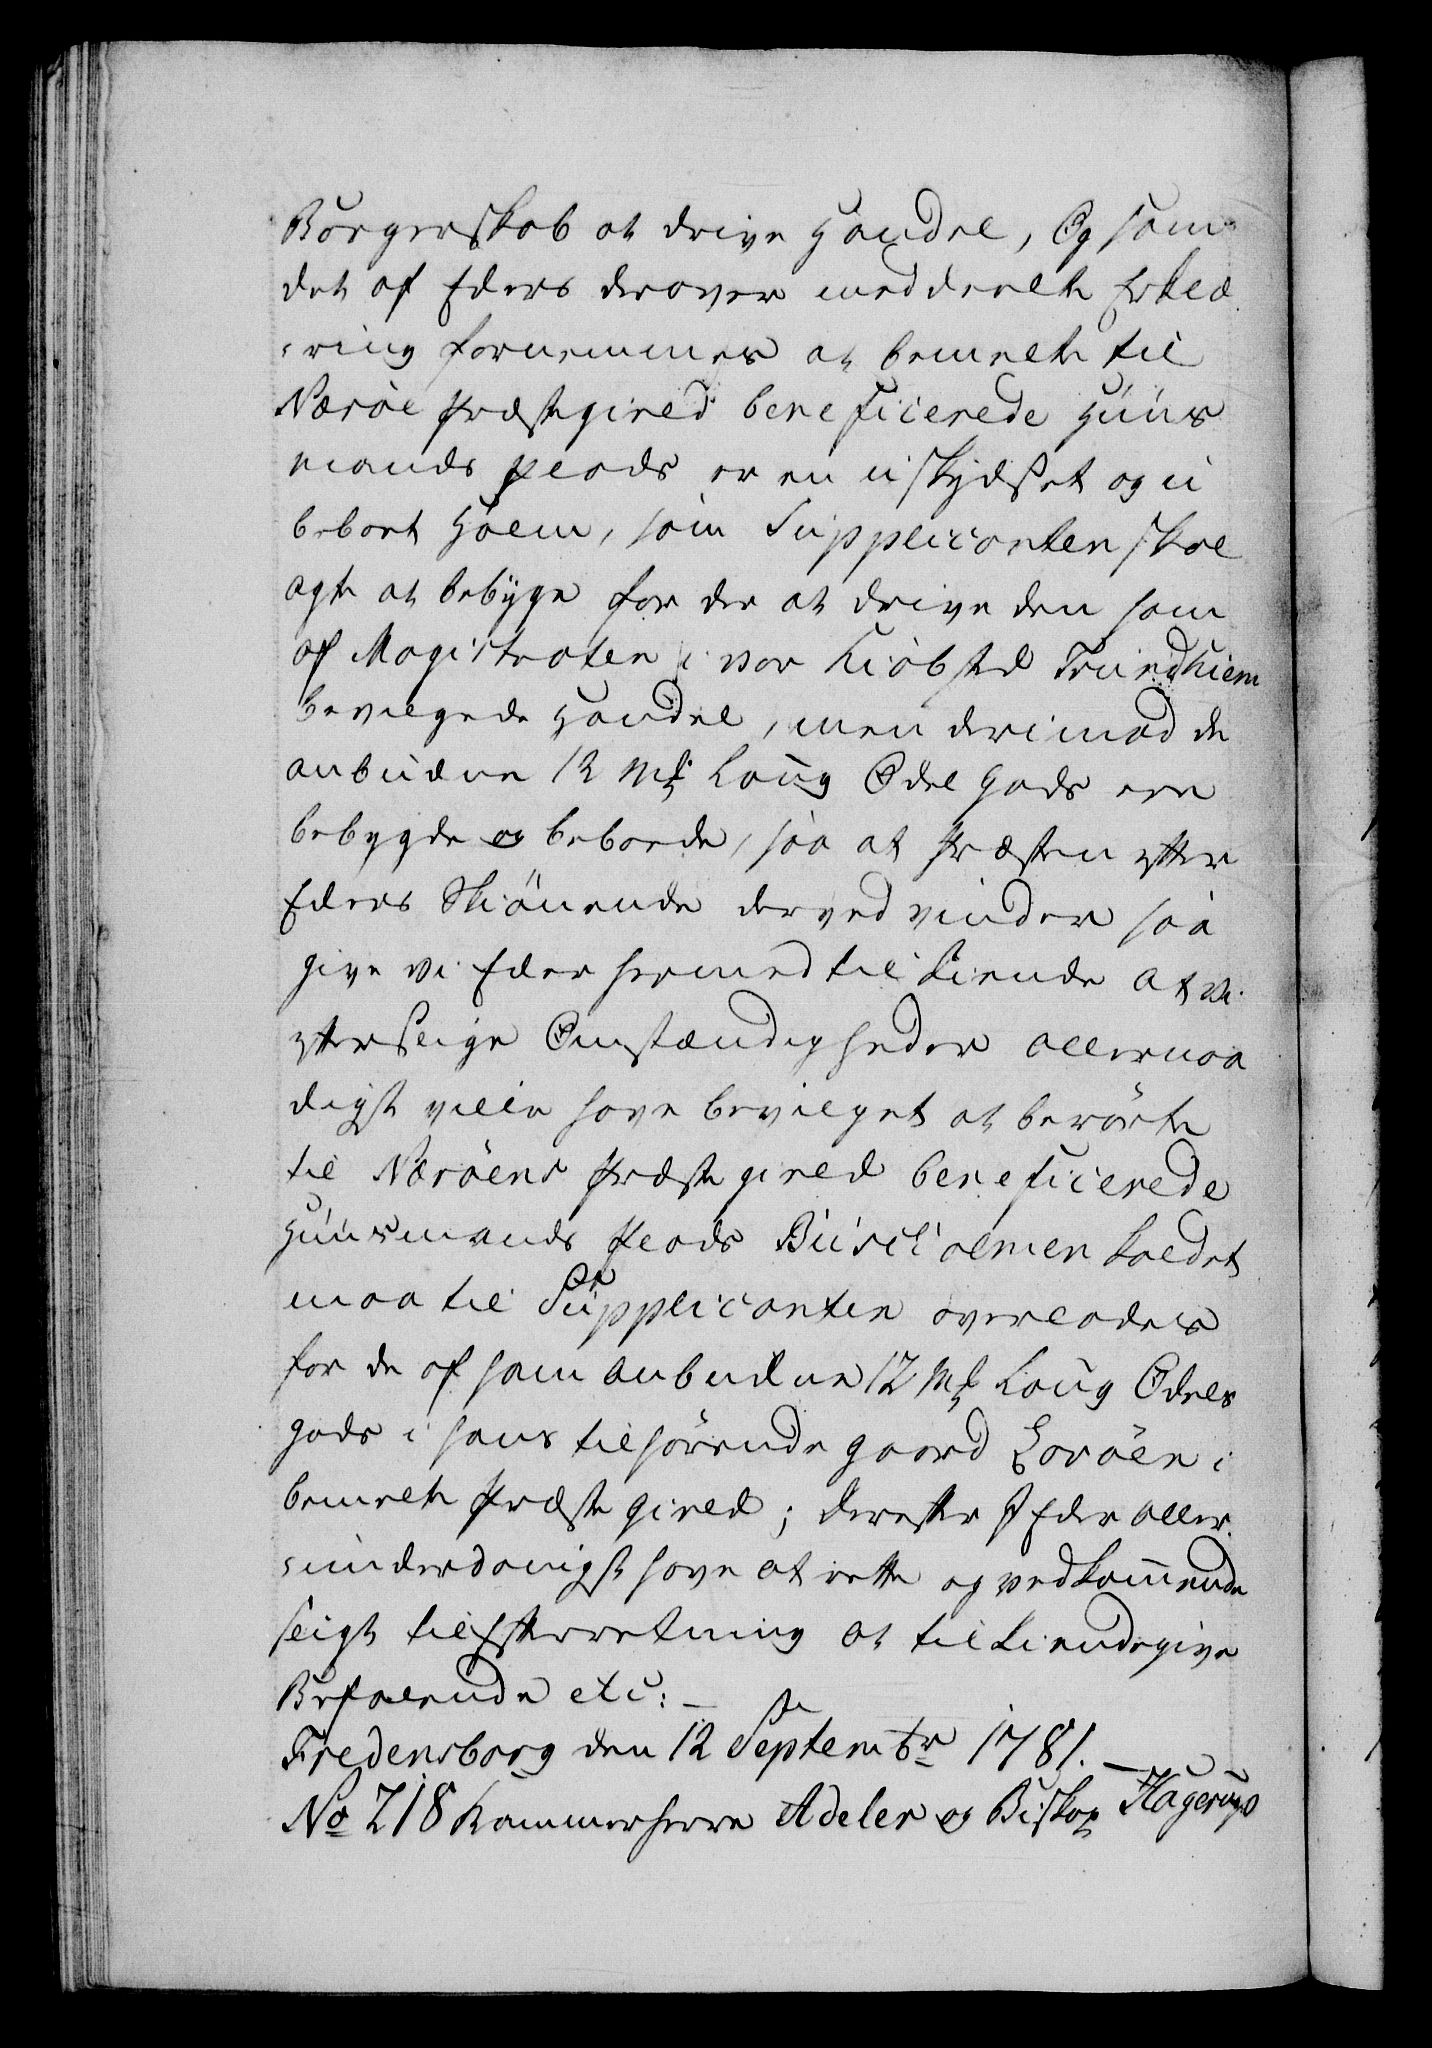 Borgerskab at drive Handel, Og som
det af Eders derover meddeelte Erklæ
-ring fornemmes at bemelte til
Nærøe Præstegield beneficerede Huus
mands Plads er en uskydsset og u
beboet Holm, som Supplicanten skal
agte at bebyge for der at drive den ham
af Magistraten i vor Kiøbsted Trundhiem
bevilgede Handel, men derimod de
anbudne 12 Mk Laug Odel Gods ere
bebygde og beboede, saa at Præsten efter
Eders Skiønende derved vinder saa
give vi Eder hermed tilkiende at vi
efter slige Omstændigheder allernaa
digst ville have bevilget at berørte
til Nærøens Præstegield beneficerede
Huusmands Plads Buurholmen kaldet
maa til Supplicanten overlades
for de af ham anbudne 12 Mk Laug Odels
gods i hans tilhørende gaard Horøen i
bemelte Præstegield; derefter I Eder aller
-underdanigst have at rette og vedkommende
sligt til Efterretning at tilkiendegive
Befalende etc: —
Fredensborg den 12 Septembr 1781. —
No 718 Kammerherre Adeler og Biskop Hagerup